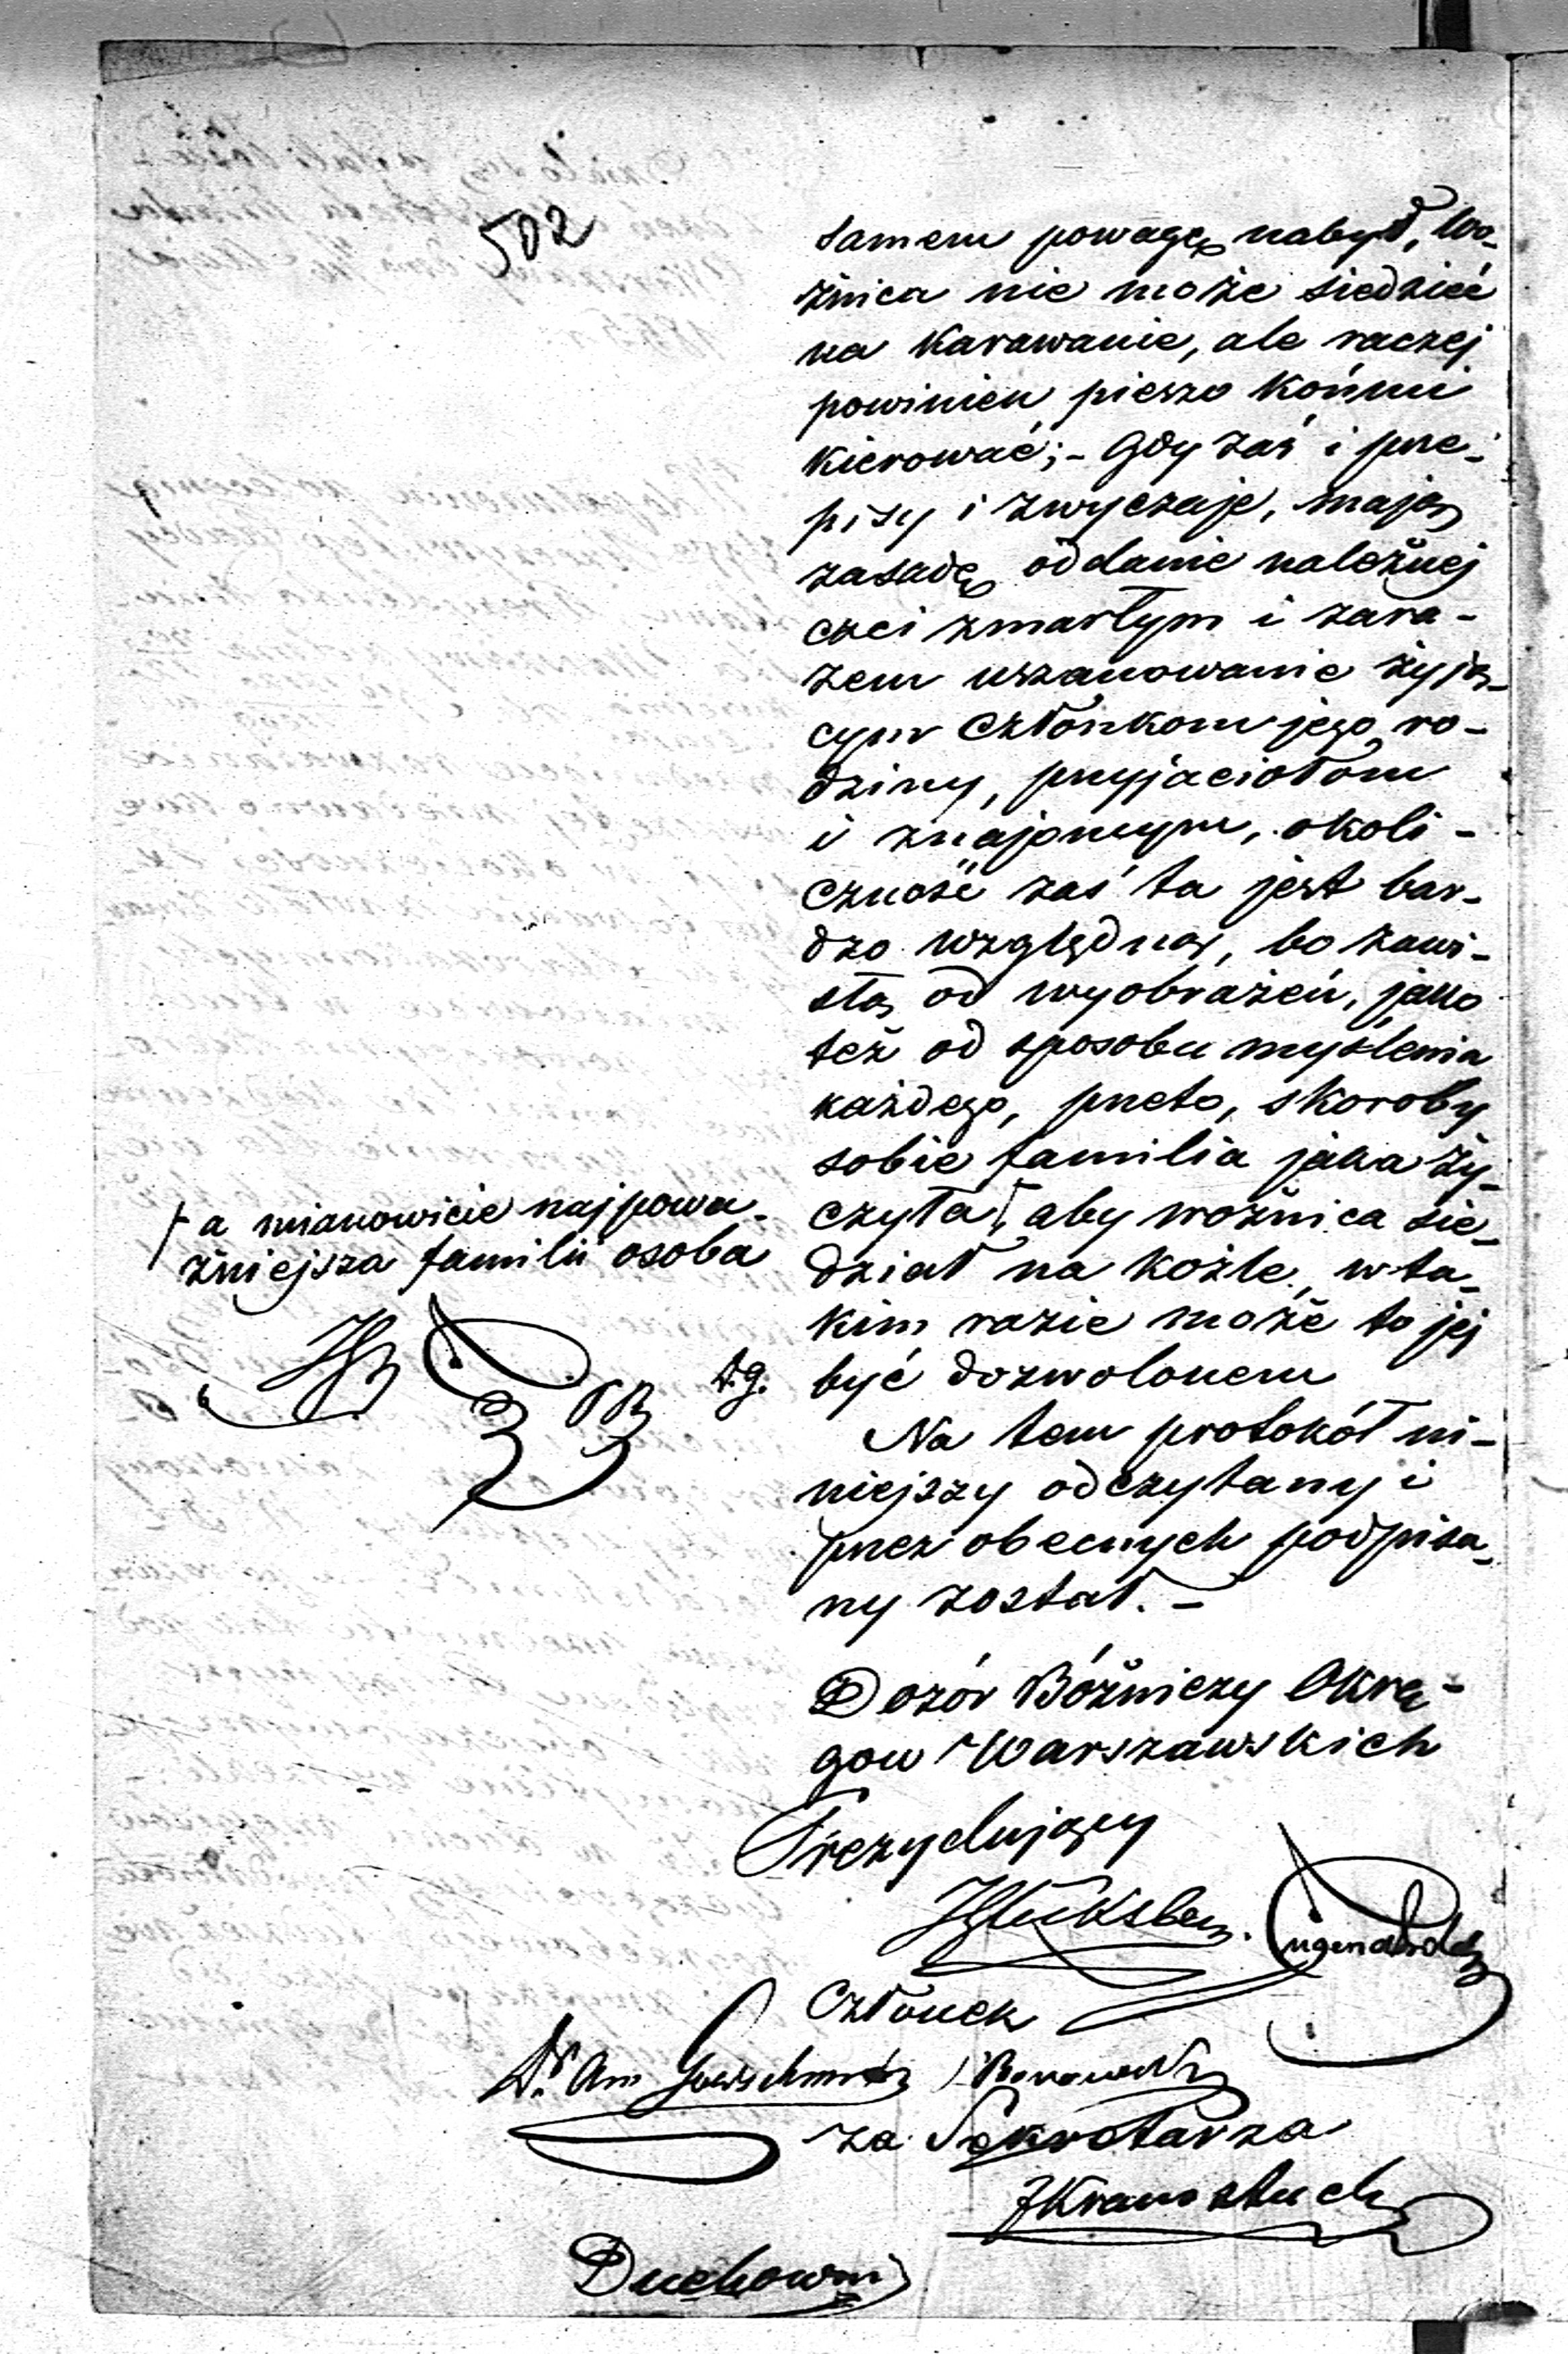 502
samem powagę nabył, Wo-
źnica nie może siedzieć
na Karawanie, ale raczej
powinien pieszo Końmi
Kierować; - Gdy zaś i prze-
pisy i zwyczaje, mają
zasadę oddanie należnej
czci zmarłym i zara-
zem uszanowanie żyją-
cym Członkom jego ro-
dziny, przyjaciołom
i znajomym, okoli-
czność zaś ta jest bar-
dzo względną, bo zawi-
słą od wyobrażeń, jako
też od sposobu myślenia
każdego, przeto, skoroby
sobie familia jaka ży-
czyła, aby woźnica sie-
dział na koźle, w ta-
kim razie może to jej
być dozwolonem
Na tem protokół ni-
niejszy odczytany i
przez obecnych podpisa-
ny został. -
a mianowicie najpowa-
żniejsza familii osoba
Dozór Bóżniczy Okrę-
gow Warszawskich
Prezydujący
Członek
za Sekretarza
JKramsztuck
Duchowny